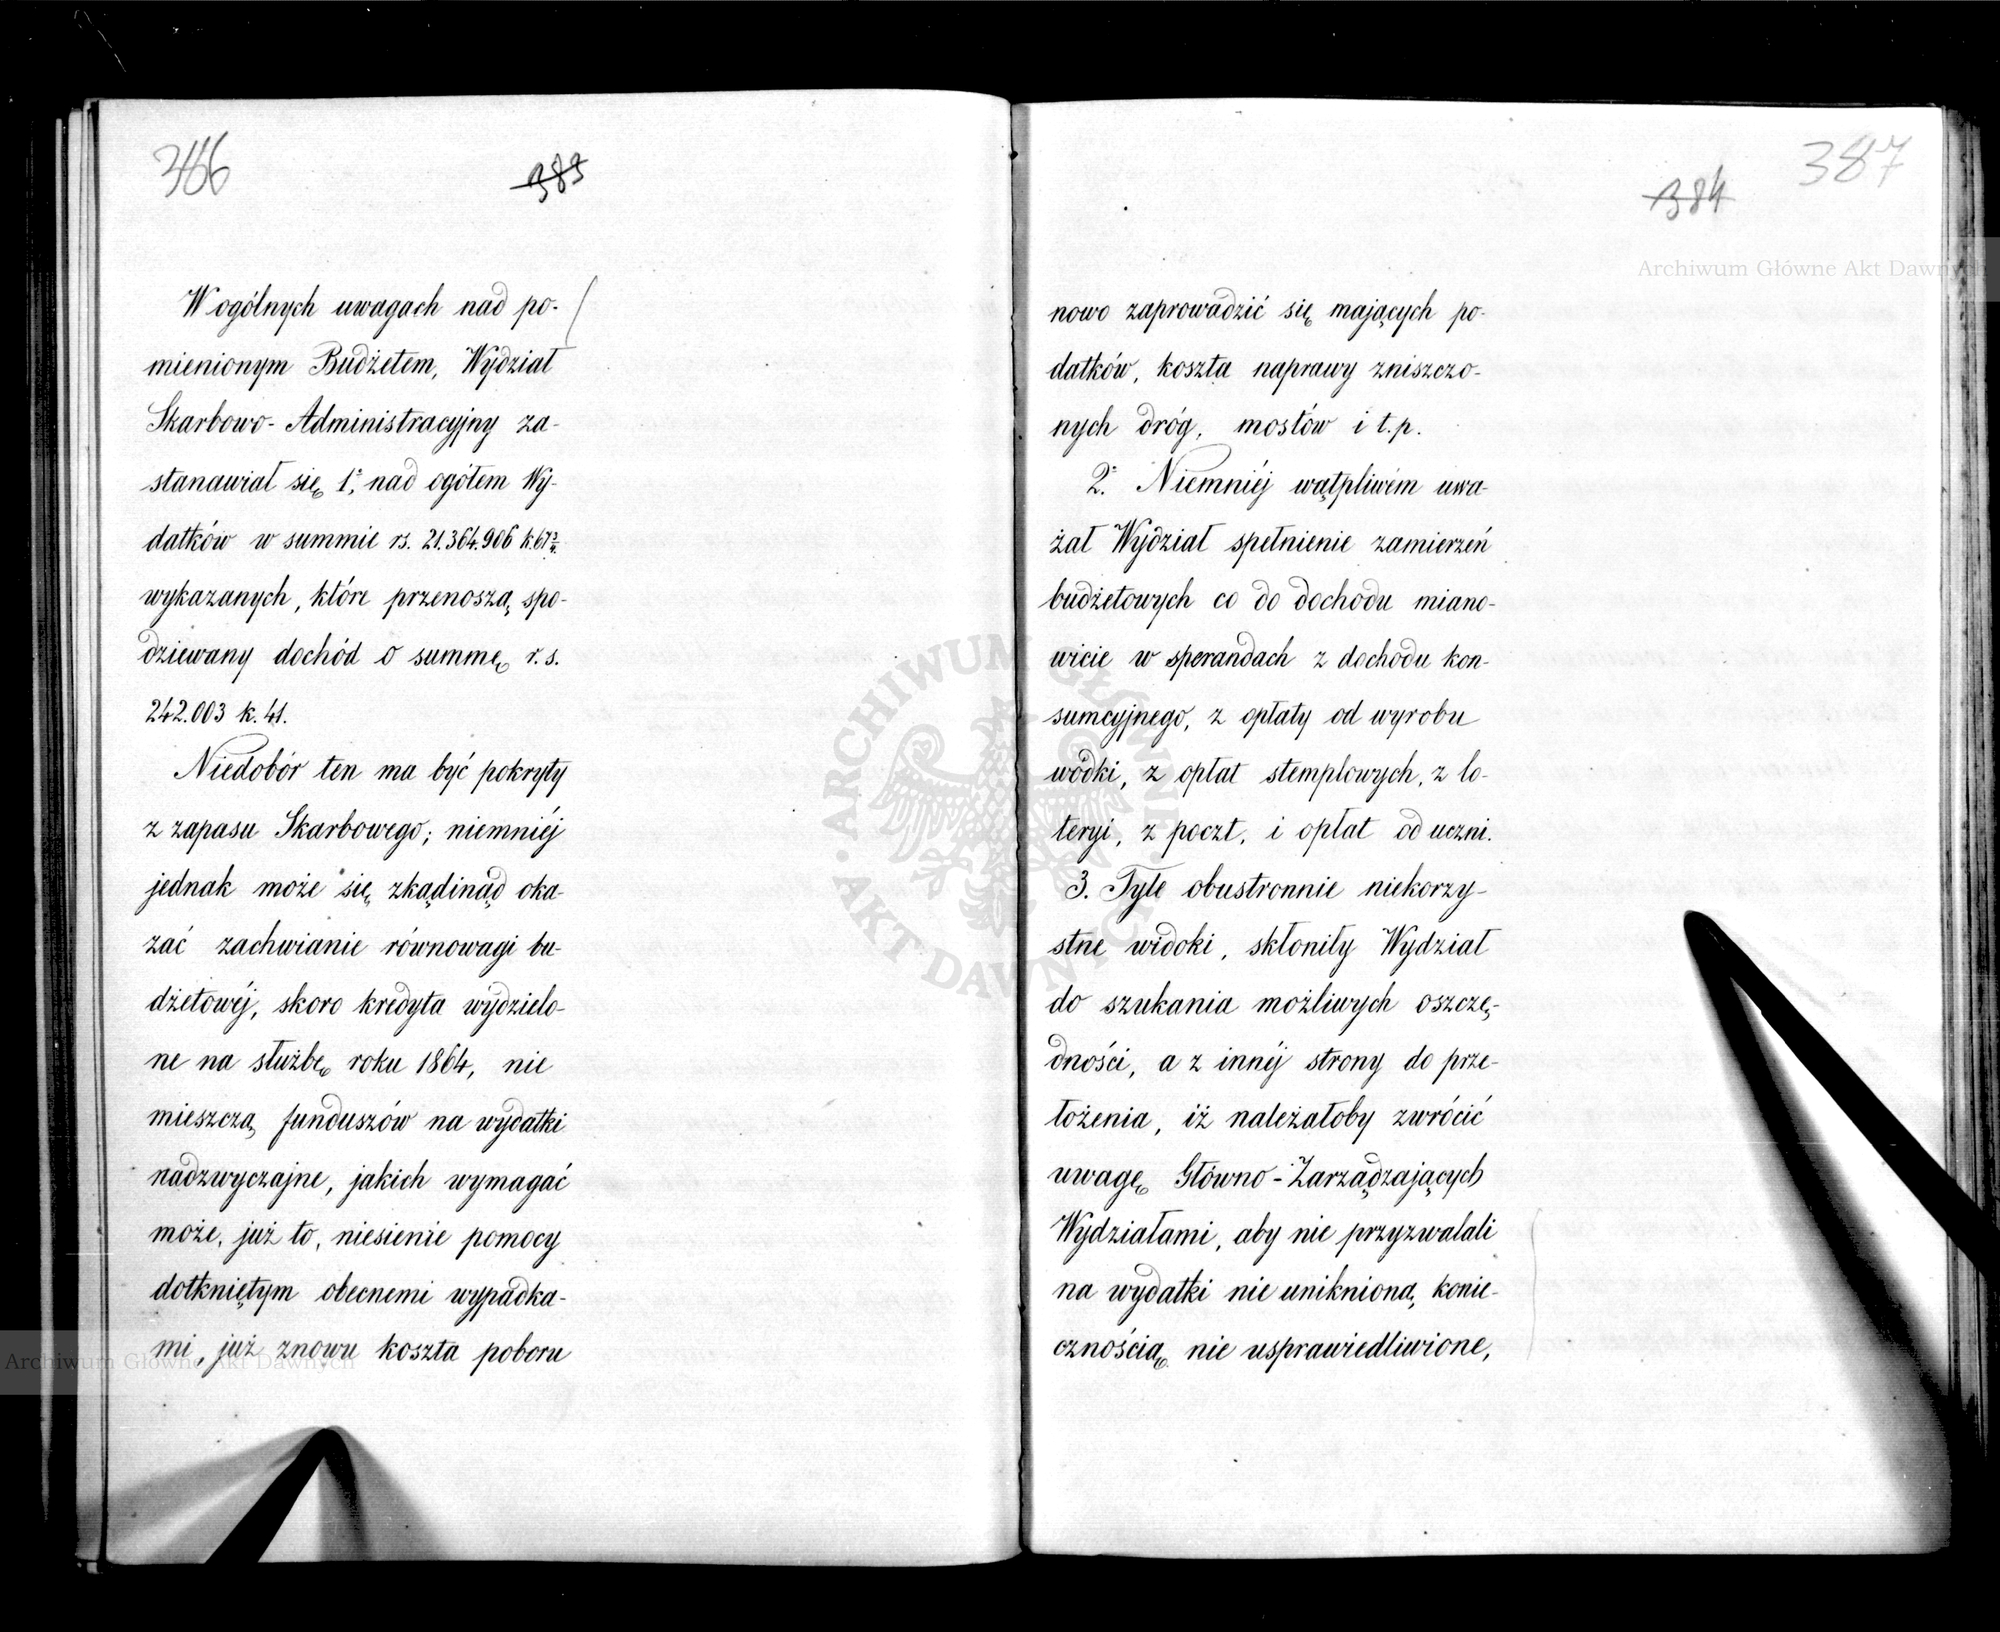 386
383
W ogólnych uwagach nad po-
mienionym Budżetem, Wydział
Skarbowo-Administracyjny za-
stanawiał się 1º, nad ogółem Wy-
datków w summie rs. 21.364.906 k. 67¾
wykazanych, które przenoszą spo-
dziewany dochód o summę r. s.
242.003 k. 41.
Niedobór ten ma być pokryty
z zapasu Skarbowego; niemniéj
jednak może się zkądinąd oka-
zać zachwianie równowagi bu-
dżetowéj, skoro kredyta wydzielo-
ne na służbę roku 1864, nie
mieszczą funduszów na wydatki
nadzwyczajne, jakich wymagać
może, już to, niesienie pomocy
dotkniętym obecnemi wypadka-
mi, już znowu koszta poboru
387
384
nowo zaprowadzić się mających po-
datków, koszta naprawy zniszczo-
nych dróg, mostów i t. p.
2º. Niemniéj wątpliwém uwa-
żał Wydział spełnienie zamierzeń
budżetowych co do dochodu miano-
wicie w sperandach z dochodu kon-
sumcyjnego, z opłaty od wyrobu
wódki, z opłat stemplowych, z lo-
teryi, z poczt, i opłat od uczni.
3. Tyle obustronnie niekorzy-
stne widoki, skłoniły Wydział
do szukania możliwych oszczę-
dności, a z innéj strony do prze-
łożenia, iż należałoby zwrócić
uwagę Główno-Zarządzających
Wydziałami, aby nie przyzwalali
na wydatki nie uniknioną konie-
cznością nie usprawiedliwione,
Archiwum Główne Akt Dawnych
Archiwum Główne Akt Dawnych
ARCHIWUM GŁÓWNE AKT DAWNYCH